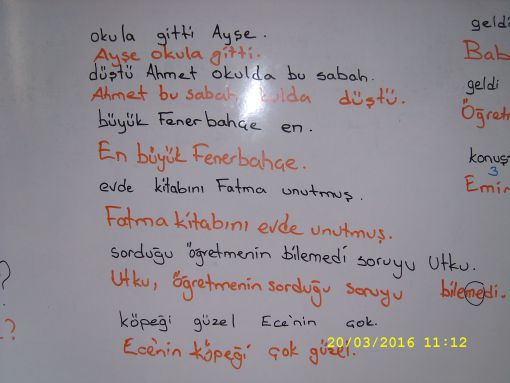 okula gitti Ayşe.
Ayşe okula gitti.
düştü Ahmet okulda bu sabah.
Ahmet bu sabah okulda düştü.
büyük Fenerbahçe en.
En büyük Fenerbahçe.
evde kitabını Fatma unutmuş.
Fatma kitabını evde unutmuş.
sorduğu öğretmenin bilemedi soruyu Utku.
Utku, öğretmenin sorduğu soruyu bilemedi.
köpeği güzel Ece'nin çok.
Ece'nin köpeği çok güzel.
geldi
Bab
geldi
Öğretm
konuşt
3
Emin
?
?
20/03/2016 11:12